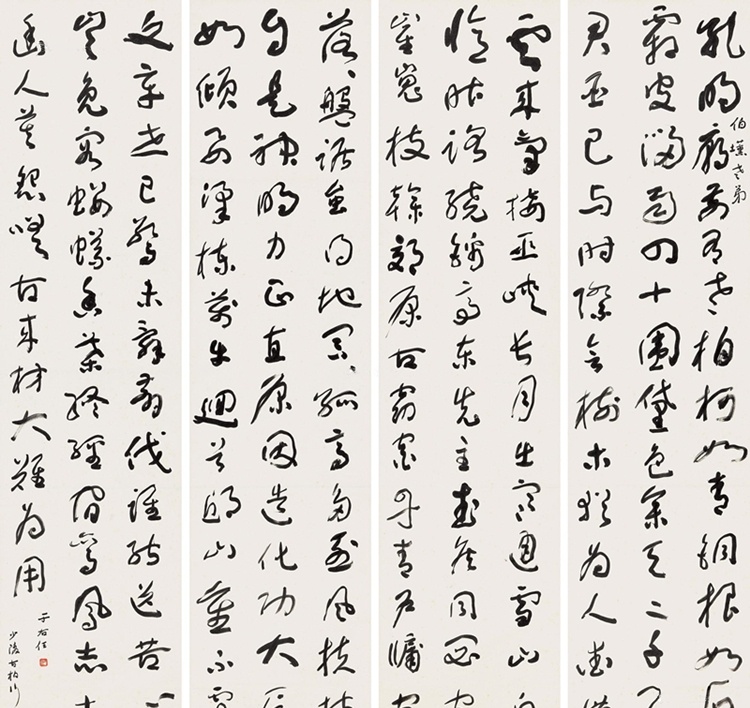 孔明廟前有老柏柯如青銅根如石
伯壎老弟
霜皮溜雨四十圍黛色參天二千尺
君臣已與時際會樹木猶為人愛惜
雲來氣接巫峽長月出寒通雪山白
憶昨路繞錦亭東先主武侯同閟宮
崔嵬枝幹郊原古窈窕丹青戶牖空
落落盤踞雖得地冥冥孤高多烈風扶持
自是神明力正直原因造化功大厦
如傾要梁棟萬牛迴首邱山重不露
文章世已驚未辭剪伐誰能送苦心
豈免容螻蟻香葉終經宿鸞鳳志士
幽人莫怨嗟古來材大難為用
于右任
少陵古柏行